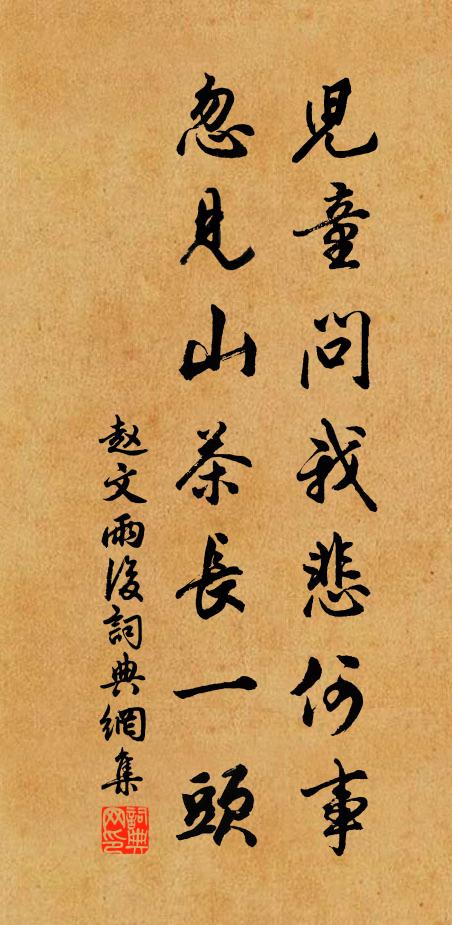 兒童問我悲何事
忽見山茶長一頭
赵文雨後詞典網集
詞典网印